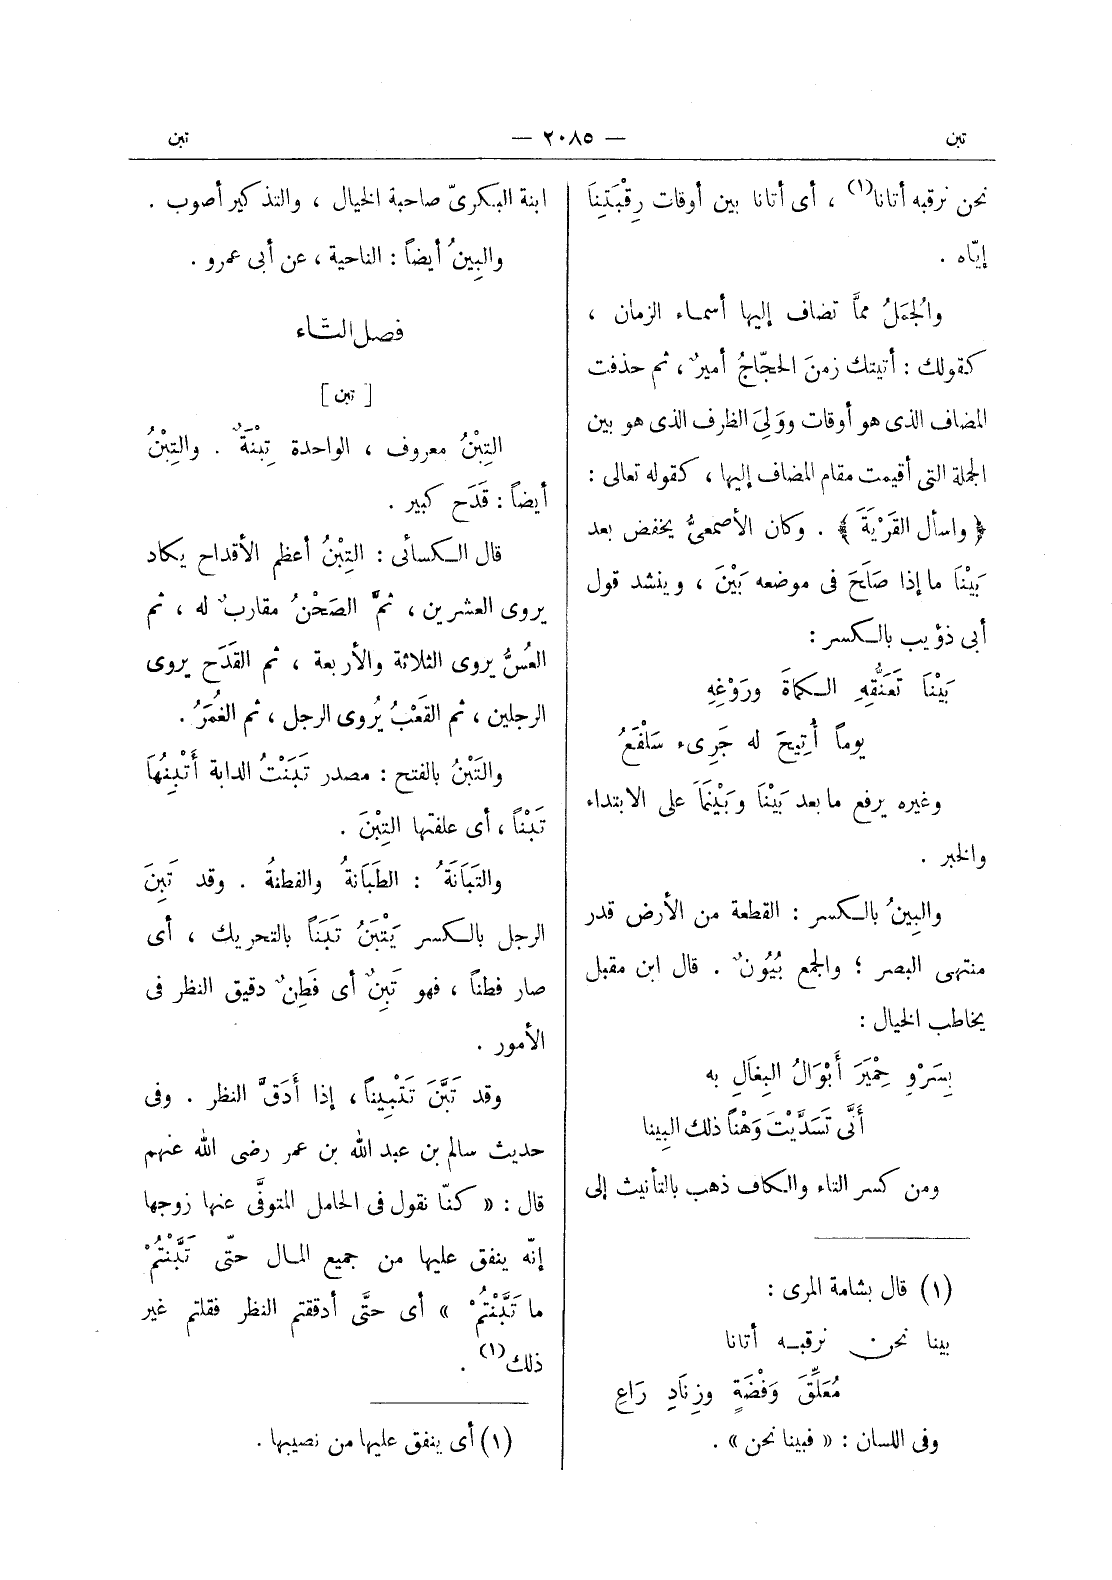 تبن — ٢٠٨٥ — تبن
نحن نرقبه أتانا(١) ، أى أتانا بين أوقات رِقْبَتِنَا
إيّاه .
والجُمَلُ ممَّا تضاف إليها أسماء الزمان ،
كقولك : أتيتك زمنَ الحجّاجُ أميرٌ ، ثم حذفت
المضاف الذى هو أوقات ووَلِىَ الظرف الذى هو بين
الجملة التى أقيمت مقام المضاف إليها ، كقوله تعالى :
﴿ واسأل القَرْيَةَ ﴾ . وكان الأصمعىُّ يخفض بعد
بَيْنَا ما إذا صَلَحَ فى موضعه بَيْنَ ، وينشد قول
أبى ذؤيب بالكسر :
بَيْنَا تَعَنُّقِهِ الكماةَ ورَوْغِهِ
يوماً أُتِيحَ له جَرِىء سَلْفَعُ
وغيره يرفع ما بعد بَيْنَا وبَيْنَمَا على الابتداء
والخبر .
والبِينُ بالكسر : القطعة من الأرض قدر
منتهى البصر ؛ والجمع بُيُونٌ . قال ابن مقبل
يخاطب الخيال :
بِسَرْوِ حِمْيَرَ أَبْوَالُ البِغَالِ به
أَنَّى تَسَدَّيْتَ وَهْناً ذلك البِينا
ومن كسر التاء والكاف ذهب بالتأنيث إلى
(١) قال بشامة المرى :
بينا نحن نرقبه أتانا
مُعَلِّقَ وَفْضَةٍ وزِنَادِ رَاعِ
وفى اللسان : « فبينا نحن » .
ابنة البكرىّ صاحبة الخيال ، والتذكير أصوب .
والبِينُ أيضاً : الناحية ، عن أبى عمرو .
فصل التّاء
[ تبن ]
التِبْنُ معروف ، الواحدة تِبْنَةٌ . والتِبْنُ
أيضاً : قَدَح كبير .
قال الكسائى : التِبْنُ أعظم الأقداح يكاد
يروى العشرين ، ثمَّ الصَحْنُ مقاربٌ له ، ثم
العُسُّ يروى الثلاثة والأربعة ، ثم القَدَح يروى
الرجلين ، ثم القَعْبُ يُروى الرجل ، ثم الغُمَرُ .
والتَبْنُ بالفتح : مصدر تَبَنْتُ الدابة أَتْبِنُهَا
تَبْناً ، أى علفتها التِبْنَ .
والتَبَانَةُ : الطَبَانةُ والفطنةُ . وقد تَبِنَ
الرجل بالكسر يَتْبَنُ تَبَناً بالتحريك ، أى
صار فطناً ، فهو تَبِنٌ أى فَطِنٌ دقيق النظر فى
الأمور .
وقد تَبَّنَ تَتْبِيناً ، إذا أَدَقَّ النظر . وفى
حديث سالم بن عبد الله بن عمر رضى الله عنهم
قال : « كنّا نقول فى الحامل المتوفَّى عنها زوجها
إنّه ينفق عليها من جميع المال حتّى تَبَّنْتُمْ
ما تَبَّنْتُمْ » أى حتَّى أدققتم النظر فقلتم غير
ذلك(١) .
(١) أى ينفق عليها من نصيبها .